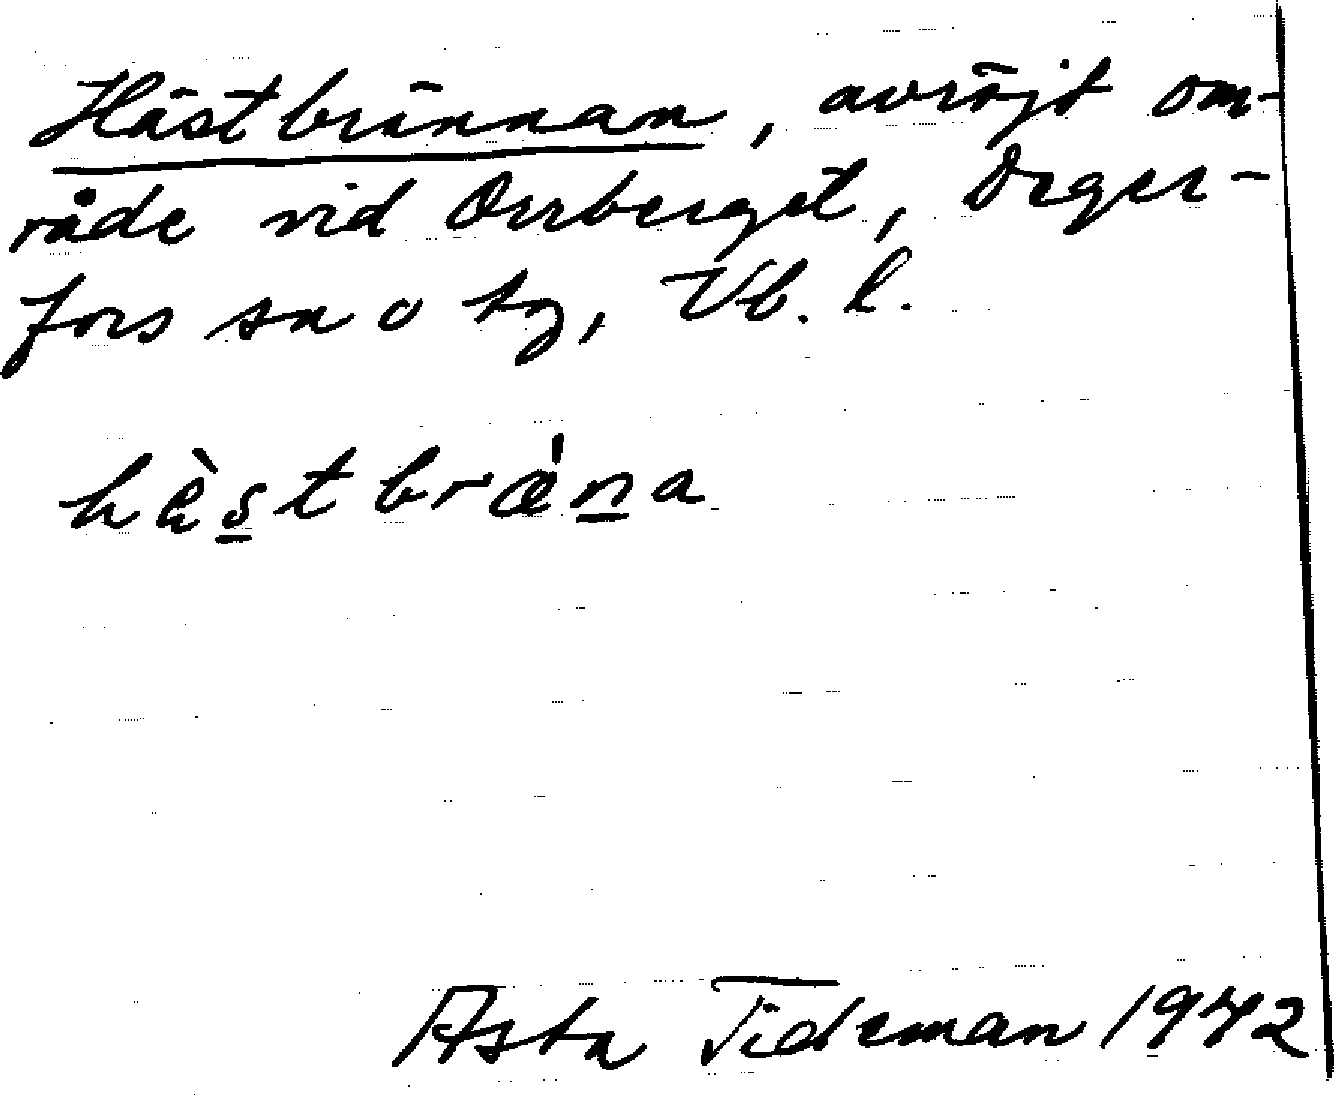 Hästbrännan, avröjt om-
råde vid Orrberget, Deger-
fors sn o tg, Vb. l.
hὲstbrǽna
Asta Tideman 1942